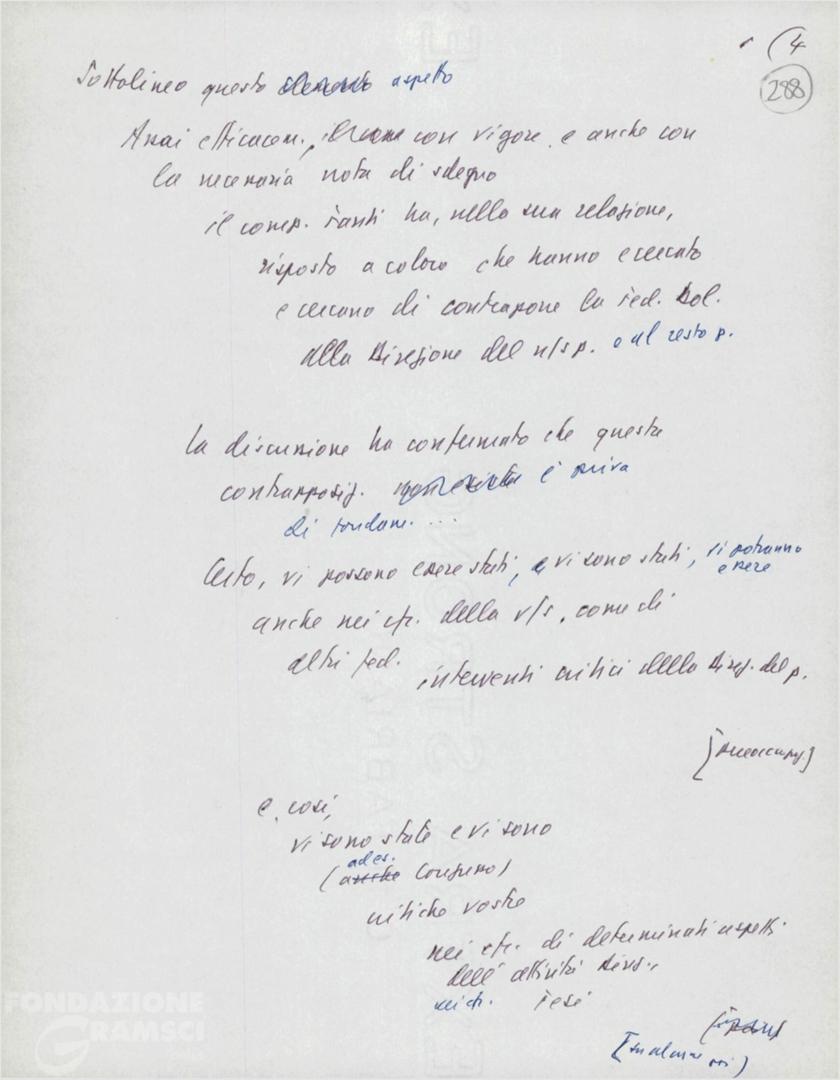 (4
288
Sottolineo questo elemento aspetto
Assai efficacem., con vigore e anche con
la necessaria nota di sdegno
il comp. Fanti ha, nella sua relazione,
risposto a coloro che hanno cercato
e cercano di contrapporre la Fed. Bol.
alla Direzione del n/s p. e al resto p.
La discussione ha confermato che questa
contrapposiz. non esiste è priva
di fondam. ...
Certo, vi possono essere stati, e vi sono stati, vi potranno
essere
anche nei cfr. della v/s, come di
altre fed.
interventi critici della Direz. del p.
[preoccupaz.]
e, così,
vi sono state e vi sono
ades.
(anche Congresso)
critiche vostre
nei cfr. di determinati aspetti
dell'attività Direz.,
nei cfr. Tesi
FONDAZIONE
GRAMSCI